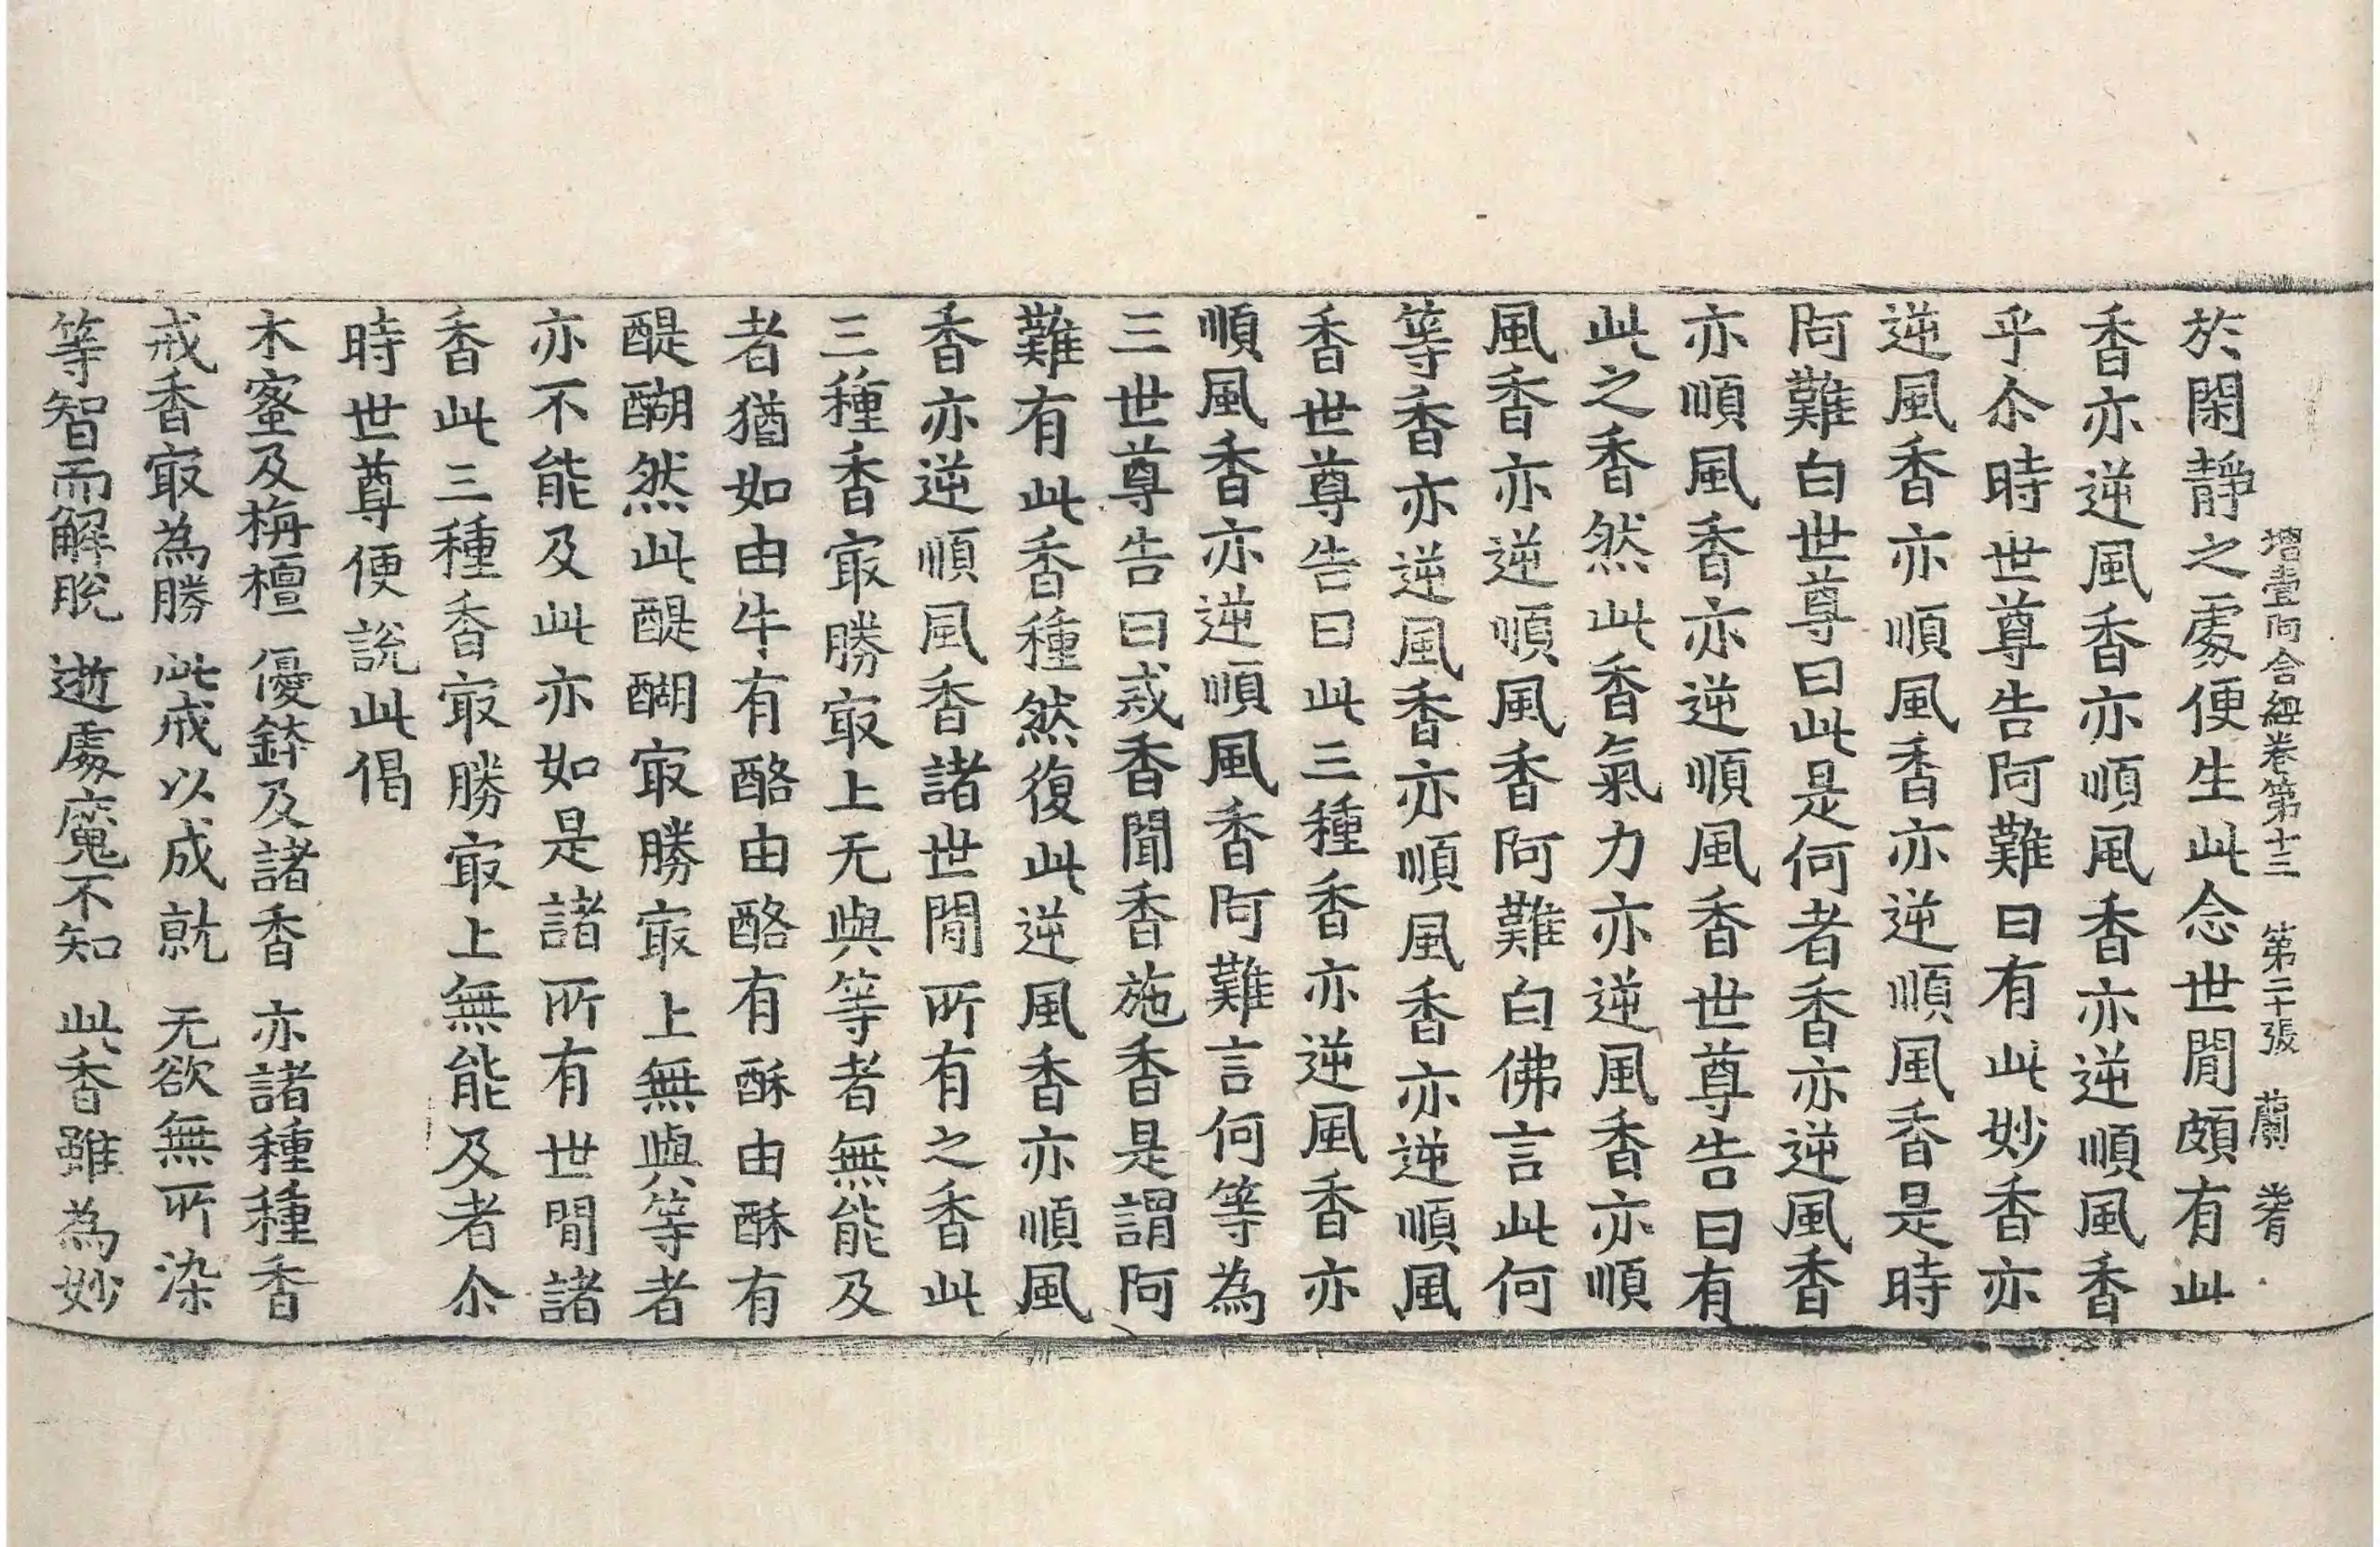 增壹阿含經卷第十三　第二十張　蘭
於閑靜之處便生此念世閒頗有此
香亦逆風香亦順風香亦逆順風香
乎尒時世尊告阿難曰有此妙香亦
逆風香亦順風香亦逆順風香是時
阿難白世尊曰此是何者香亦逆風香
亦順風香亦逆順風香世尊告曰有
此之香然此香氣力亦逆風香亦順
風香亦逆順風香阿難白佛言此何
等香亦逆風香亦順風香亦逆順風
香世尊告曰此三種香亦逆風香亦
順風香亦逆順風香阿難言何等為
三世尊告曰戒香聞香施香是謂阿
難有此香種然復此逆風香亦順風
香亦逆順風香諸世閒所有之香此
三種香冣勝冣上无與等者無能及
者猶如由牛有酪由酪有酥由酥有
醍醐然此醍醐冣勝冣上無與等者
亦不能及此亦如是諸所有世閒諸
香此三種香冣勝冣上無能及者尒
時世尊便說此偈
木蜜及栴檀　優鉢及諸香　亦諸種種香
戒香冣為勝　此戒以成就　无欲無所染
等智而解脫　逝處魔不知　此香雖為妙